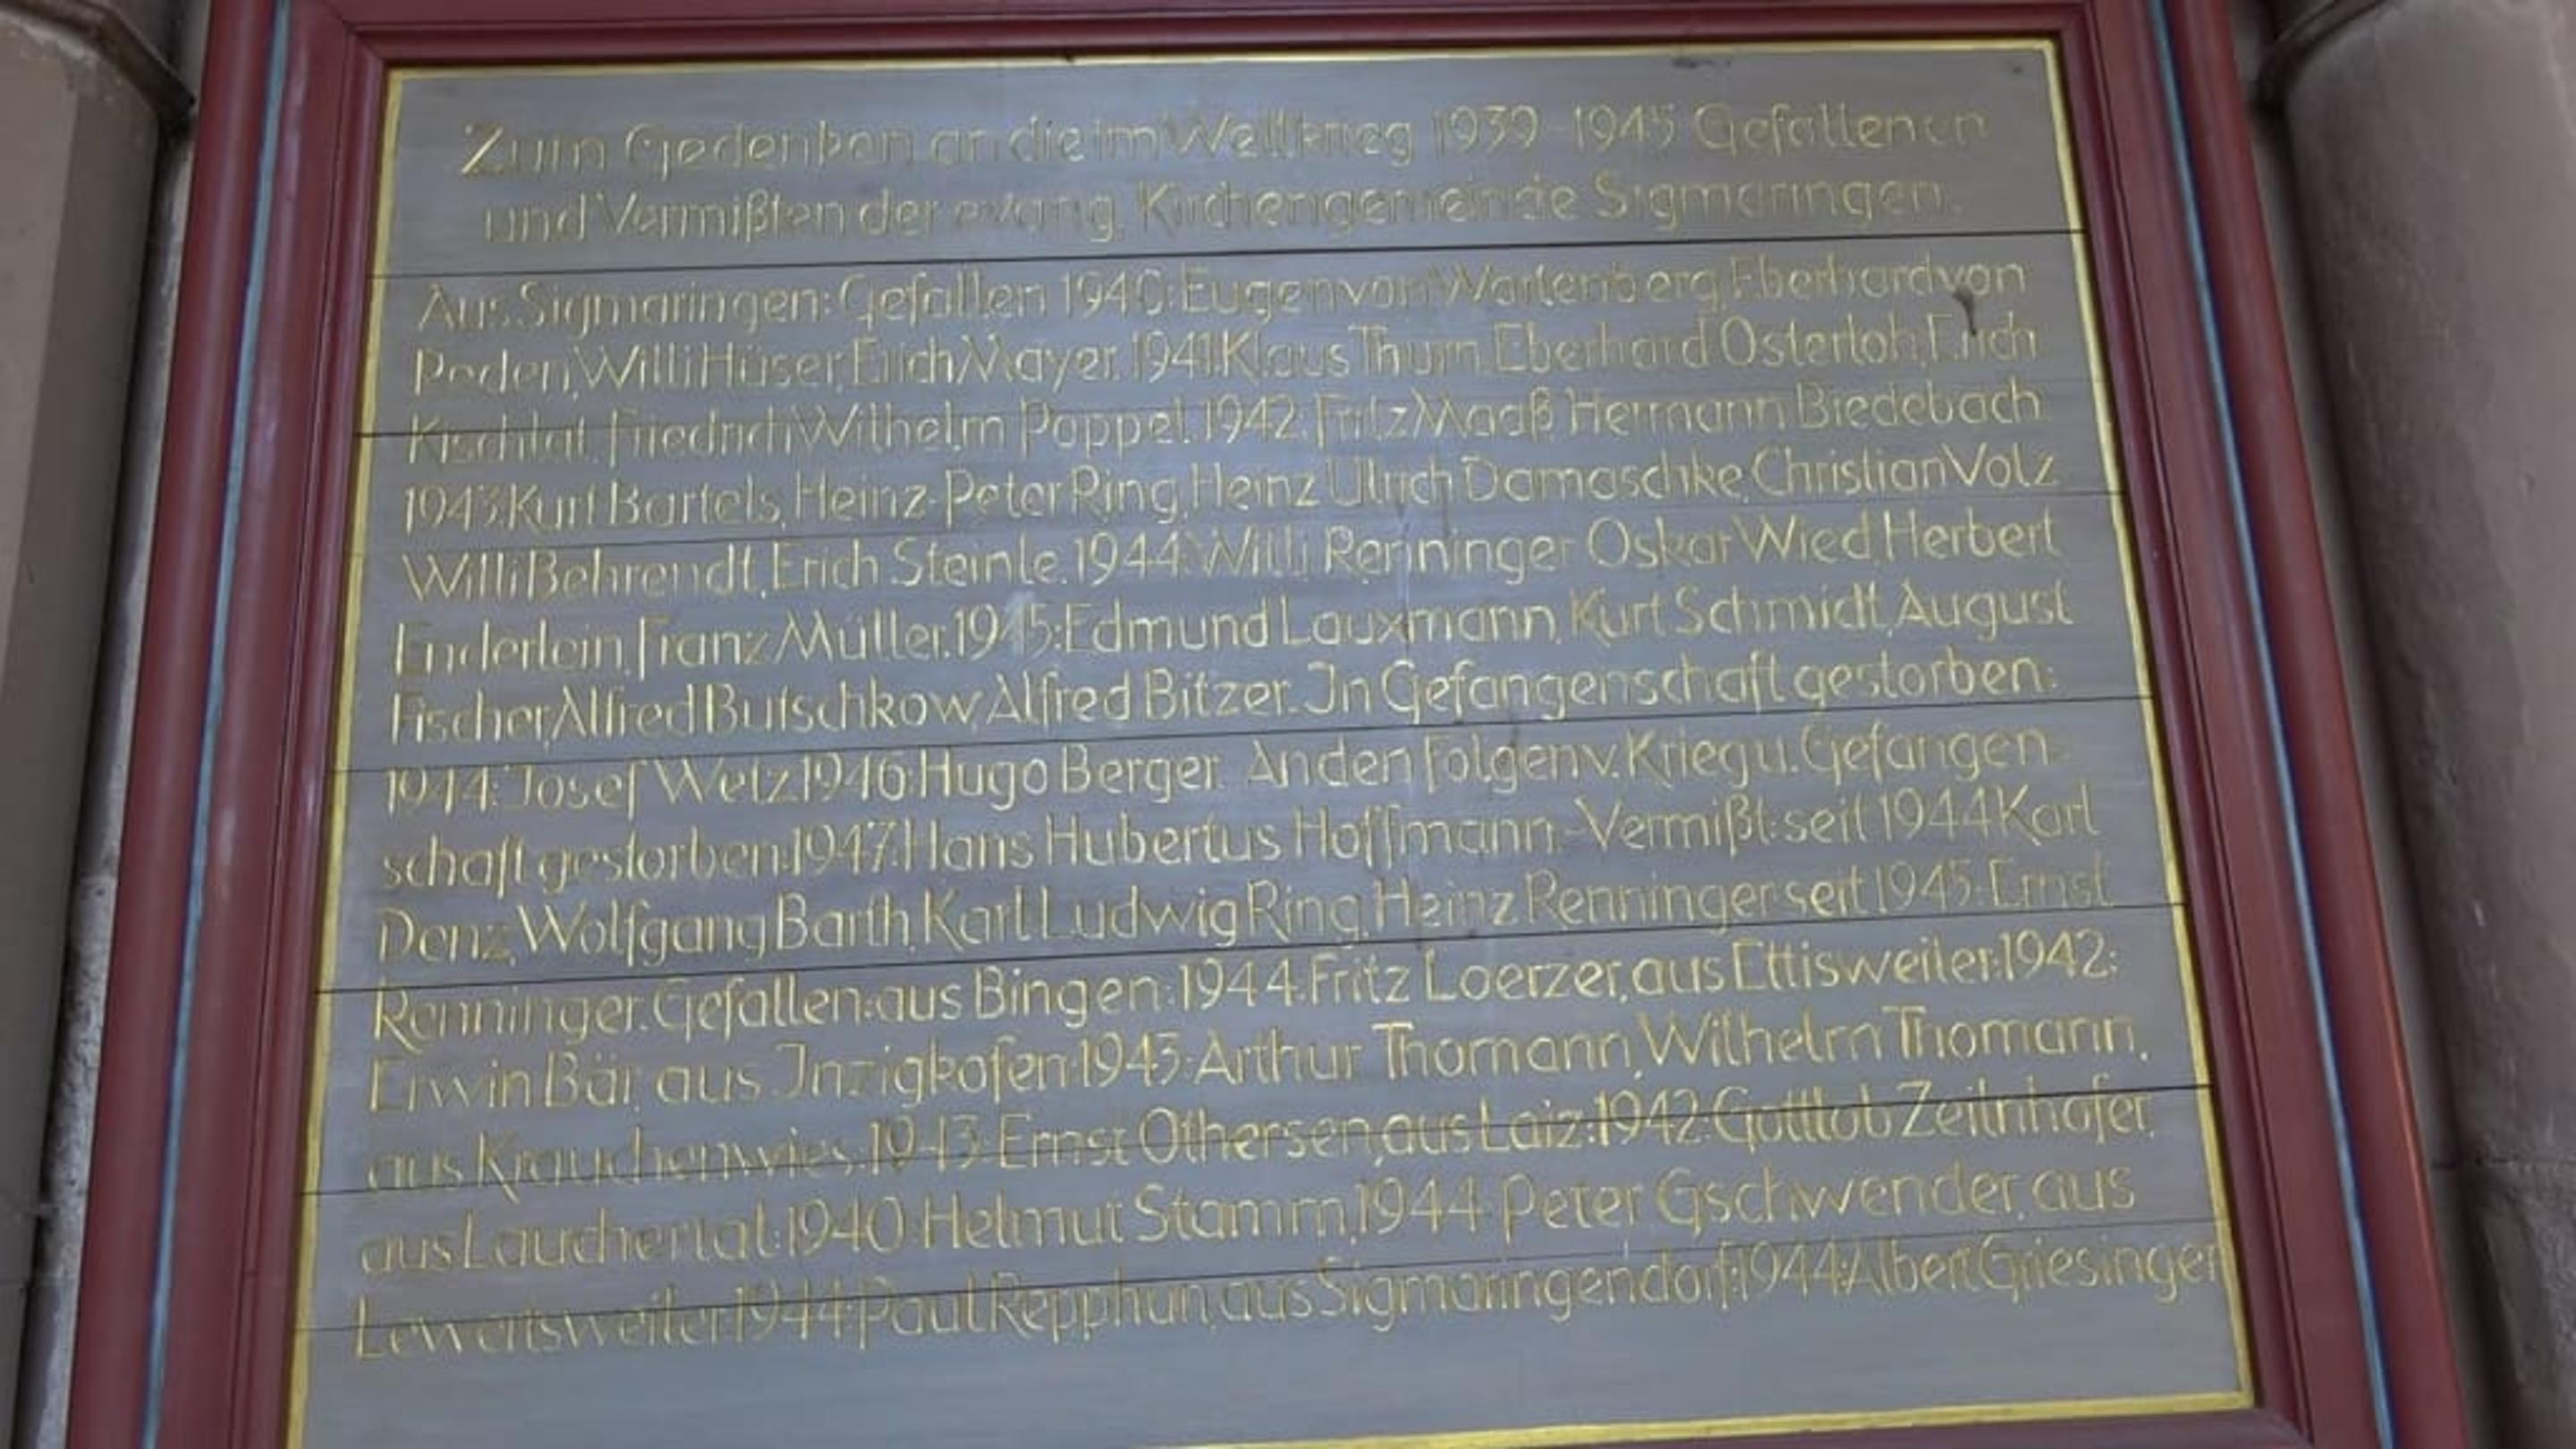 Zum Gedenken an die im Weltkrieg 1939-1945 Gefallenen
und Vermißten der evang. Kirchengemeinde Sigmaringen.
Aus Sigmaringen: Gefallen 1940: Eugen von Wartenberg, Eberhard von
Poden, Willi Hüser, Erich Mayer. 1941: Klaus Thurn, Eberhard Osterloh, Erich
Kischlat, Friedrich Wilhelm Poppel. 1942: Fritz Maaß Hermann Biedebach
1943: Kurt Bartels, Heinz-Peter Ring, Heinz Ulrich Damaschke, Christian Volz
Willi Behrendt, Erich Steinle. 1944: Willi Renninger Oskar Wied, Herbert
Enderlein, Franz Müller. 1945: Edmund Lauxmann, Kurt Schmidt, August
Fischer, Alfred Butschkow, Alfred Bitzer. In Gefangenschaft gestorben:
1944: Josef Wetz 1946: Hugo Berger. An den Folgen v. Krieg u. Gefangen-
schaft gestorben: 1947: Hans Hubertus Hoffmann.-Vermißt: seit 1944 Karl
Denz, Wolfgang Barth, Karl Ludwig Ring, Heinz Renninger seit 1945: Ernst
Renninger. Gefallen: aus Bingen: 1944: Fritz Loerzer, aus Ettisweiler: 1942:
Erwin Bär, aus Inzigkofen: 1943: Arthur Thomann, Wilhelm Thomann,
aus Krauchenwies: 1943: Ernst Othersen, aus Laiz: 1942: Gottlob Zeilnhofer,
aus Lauchertal: 1940: Helmut Stamm, 1944: Peter Gschwender, aus
Levertsweiler 1944: Paul Repphun, aus Sigmaringendorf: 1944: Albert Griesinger